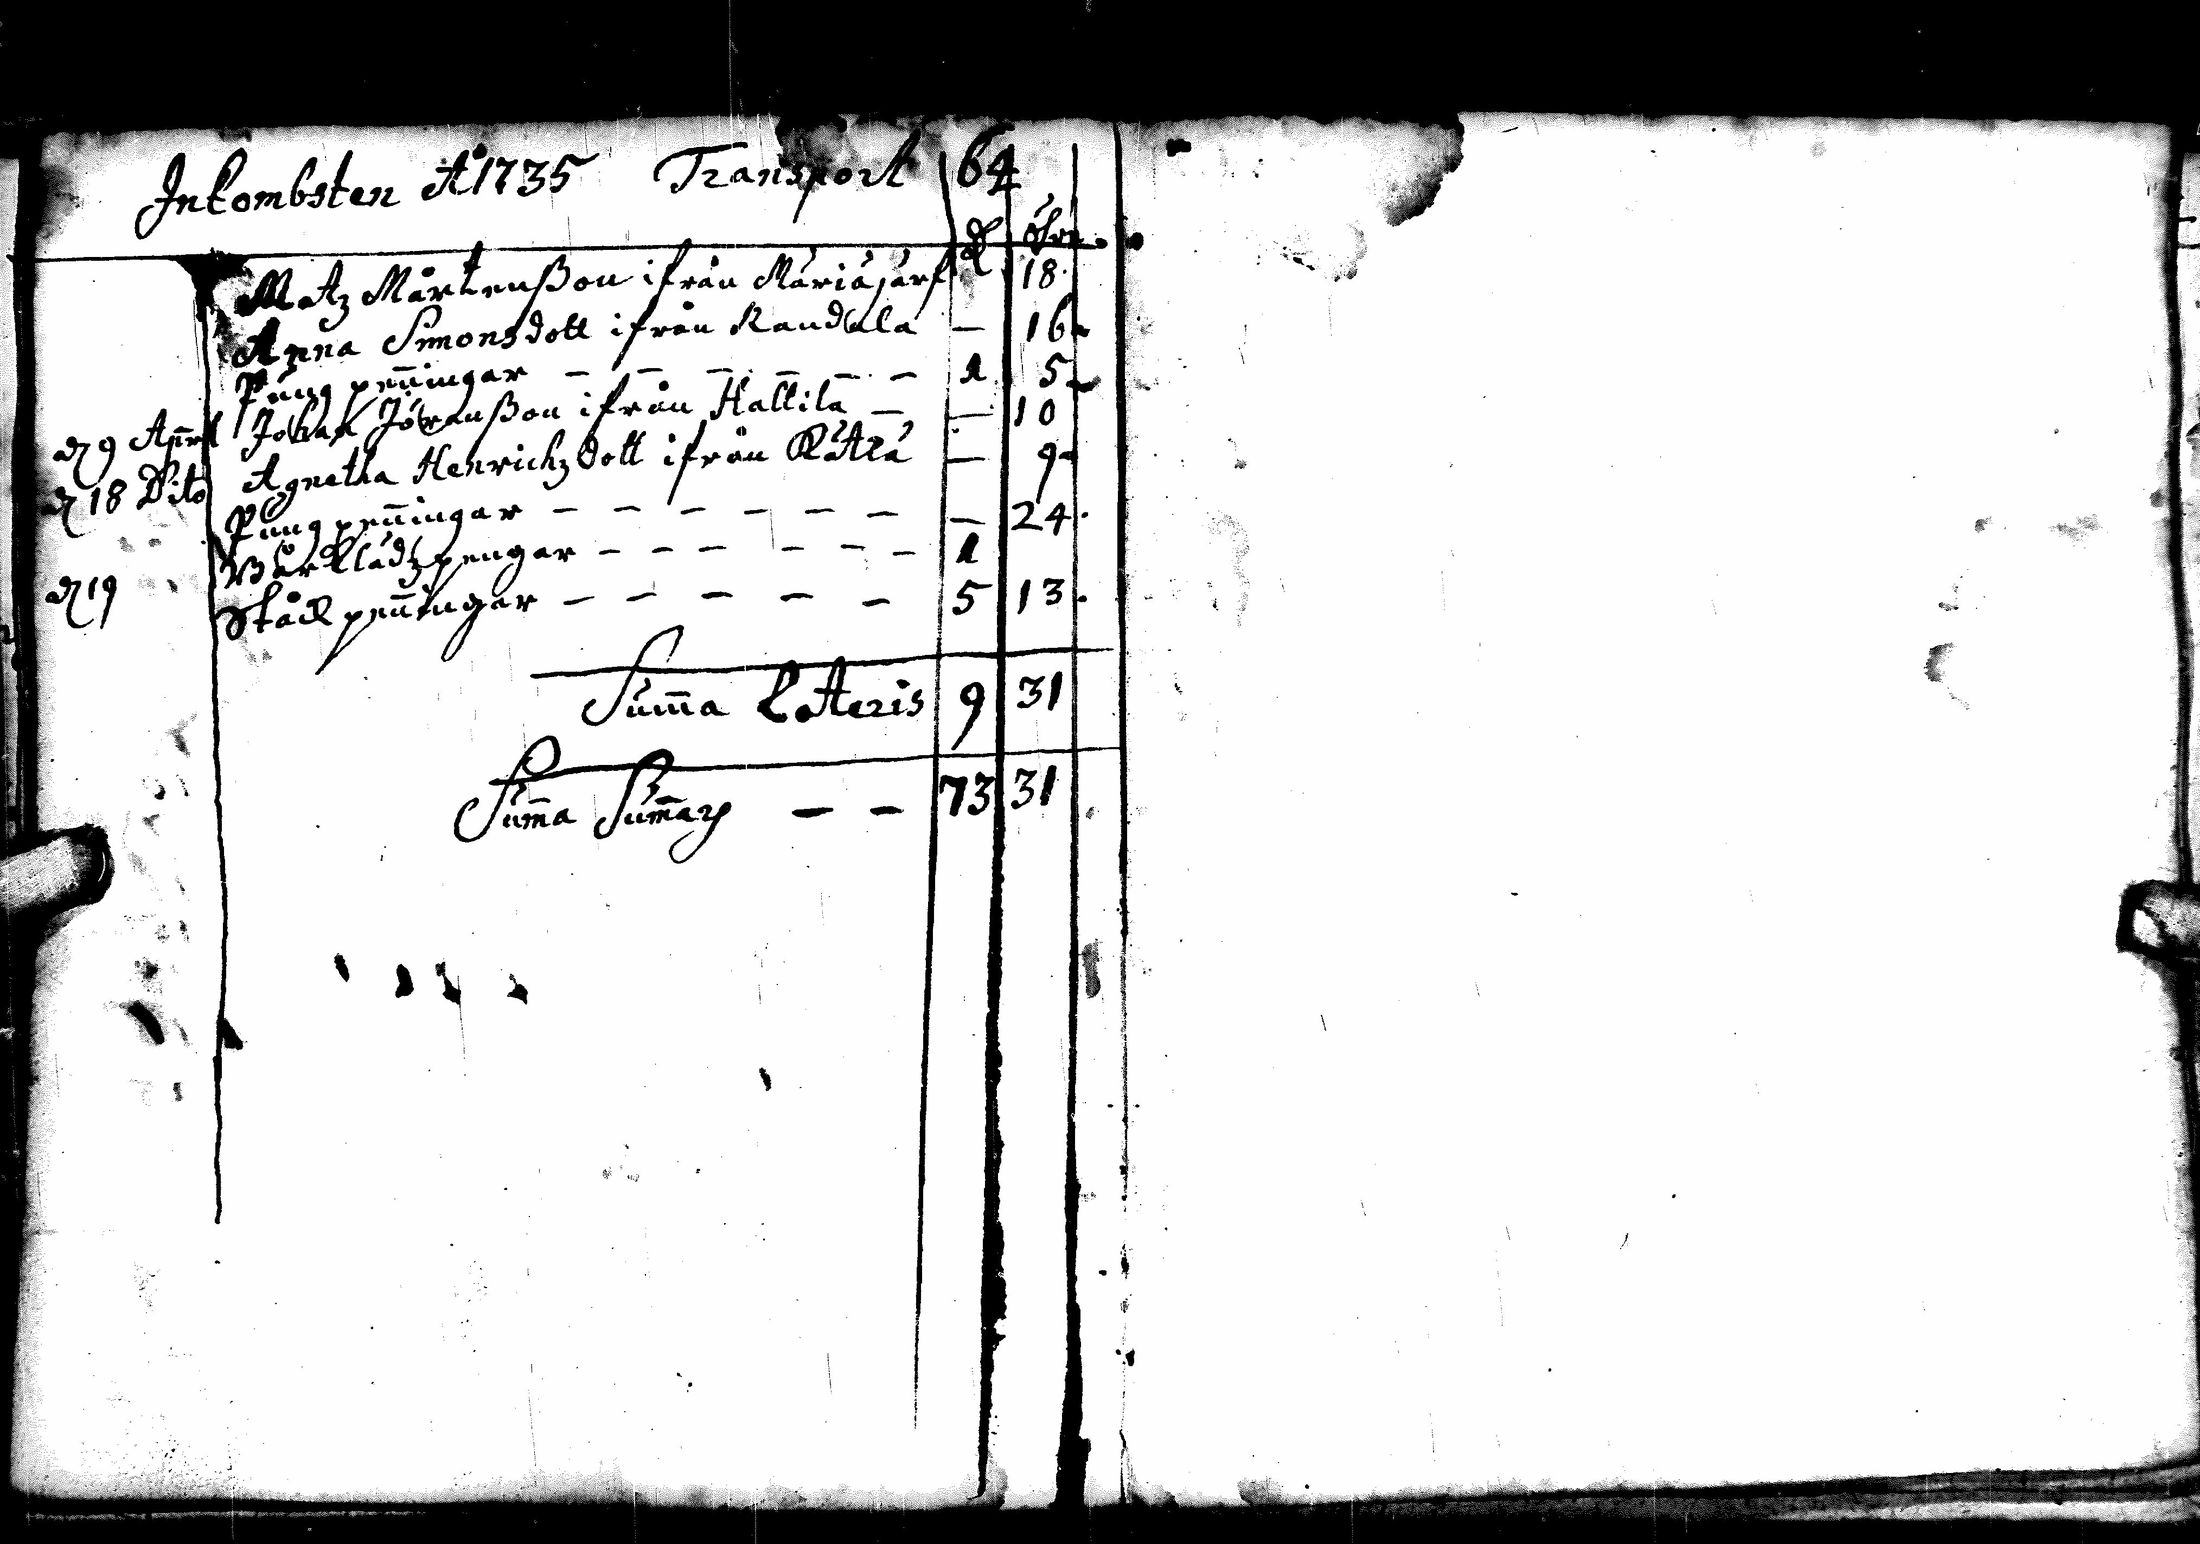 Inkombsten Aº 1735 Transport 64
D öhre
Matz Mårtenßon ifrån Mariäjärf 18
Anna Simonsdott ifrån Kandala — 16
Pung peñingar — — — — — — 1 5
d 9 Aprel Johan Jöranßon ifrån Hallila — — 10
d 18 Dito Agnetha Henrichzdott ifrån Rätlä — 9
Pung peñingar — — — — — — — 24
Bårklädz pengar — — — — — — 1
d 19 Ståck peñingar — — — — — 5 13
Sum̃a Lateris 9 31
Sum̃a Sum̃ar — — 73 31